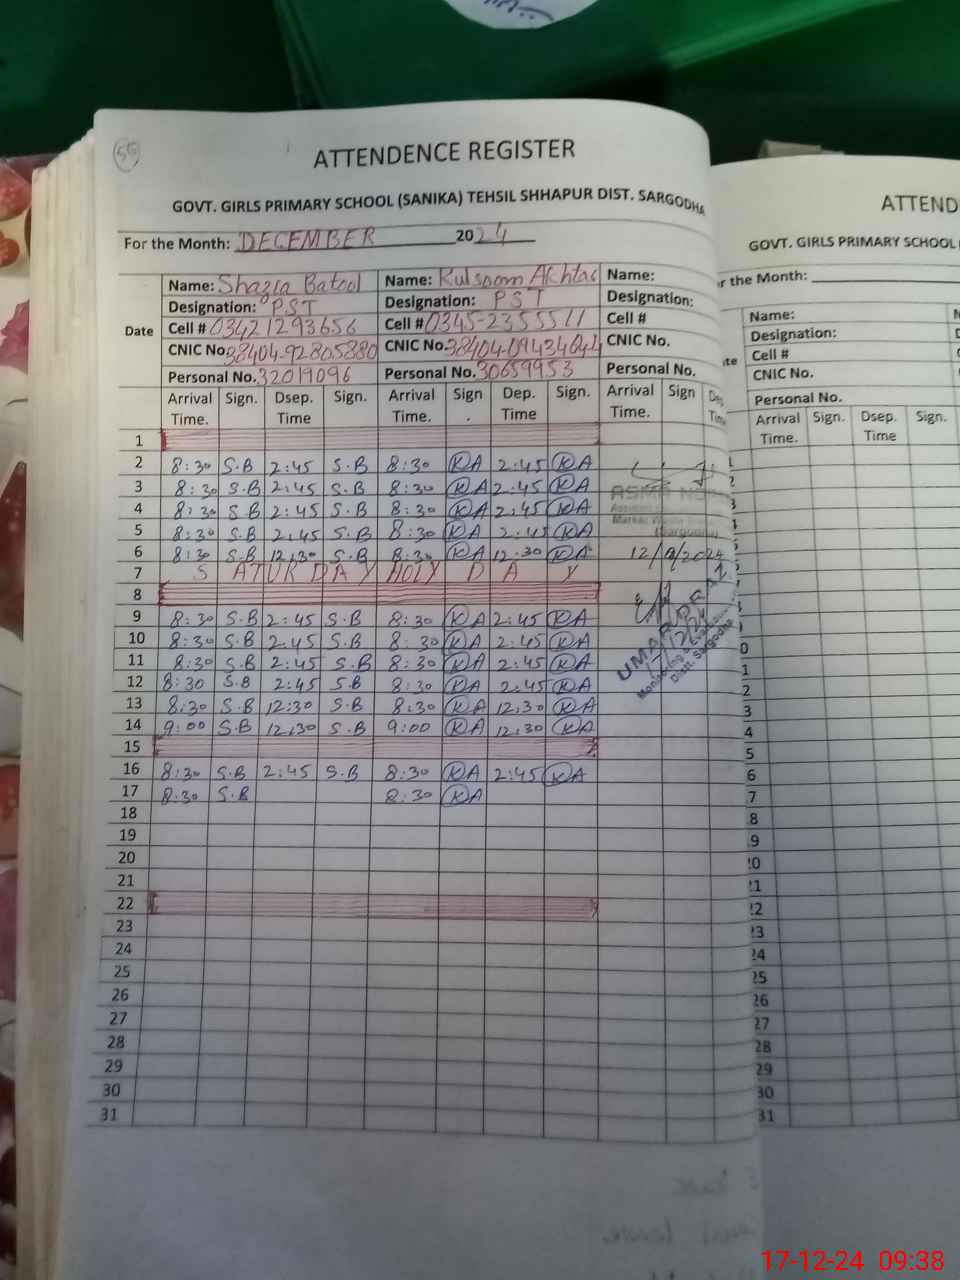 56
ATTENDENCE REGISTER
GOVT. GIRLS PRIMARY SCHOOL (SANIKA) TEHSIL SHHAPUR DIST. SARGODHA
For the Month: DECEMBER 2024
Date
Name: Shazia Batool Name: Kulsoom Akhtar Name:
Designation: PST Designation: PST Designation:
Cell # 03421293656 Cell # 0345-2355511 Cell #
CNIC No. 38404-92805880 CNIC No. 38404-09434644 CNIC No.
Personal No. 32019096 Personal No. 30659953 Personal No.
Arrival Time. Sign. Dsep. Time Sign. Arrival Time. Sign. Dep. Time Sign. Arrival Time. Sign Dep. Tim
1
2 8:30 S.B 2:45 S.B 8:30 KA 2:45 KA
3 8:30 S.B 2:45 S.B 8:30 KA 2:45 KA
4 8:30 S.B 2:45 S.B 8:30 KA 2:45 KA
5 8:30 S.B 2:45 S.B 8:30 KA 2:45 KA
6 8:30 S.B 12:30 S.B 8:30 KA 12:30 KA
7 SATURDAY HOLY DAY
8
9 8:30 S.B 2:45 S.B 8:30 KA 2:45 KA
10 8:30 S.B 2:45 S.B 8:30 KA 2:45 KA
11 8:30 S.B 2:45 S.B 8:30 KA 2:45 KA
12 8:30 S.B 2:45 S.B 8:30 KA 2:45 KA
13 8:30 S.B 12:30 S.B 8:30 KA 12:30 KA
14 9:00 S.B 12:30 S.B 9:00 KA 12:30 KA
15
16 8:30 S.B 2:45 S.B 8:30 KA 2:45 KA
17 8:30 S.B 8:30 KA
18
19
20
21
22
23
24
25
26
27
28
29
30
31
ASMA
(Sargodha)
UMAR DRAZ
Monitoring & Evaluation
Distt. Sargodha
ATTEND
GOVT. GIRLS PRIMARY SCHOOL
r the Month:
te
Name:
Designation:
Cell #
CNIC No.
Personal No.
Arrival Time. Sign. Dsep. Time Sign.
1
2
3
4
5
6
7
8
9
0
1
2
3
4
5
6
7
8
9
!0
!1
!2
!3
!4
!5
26
27
28
29
30
31
17-12-24 09:38